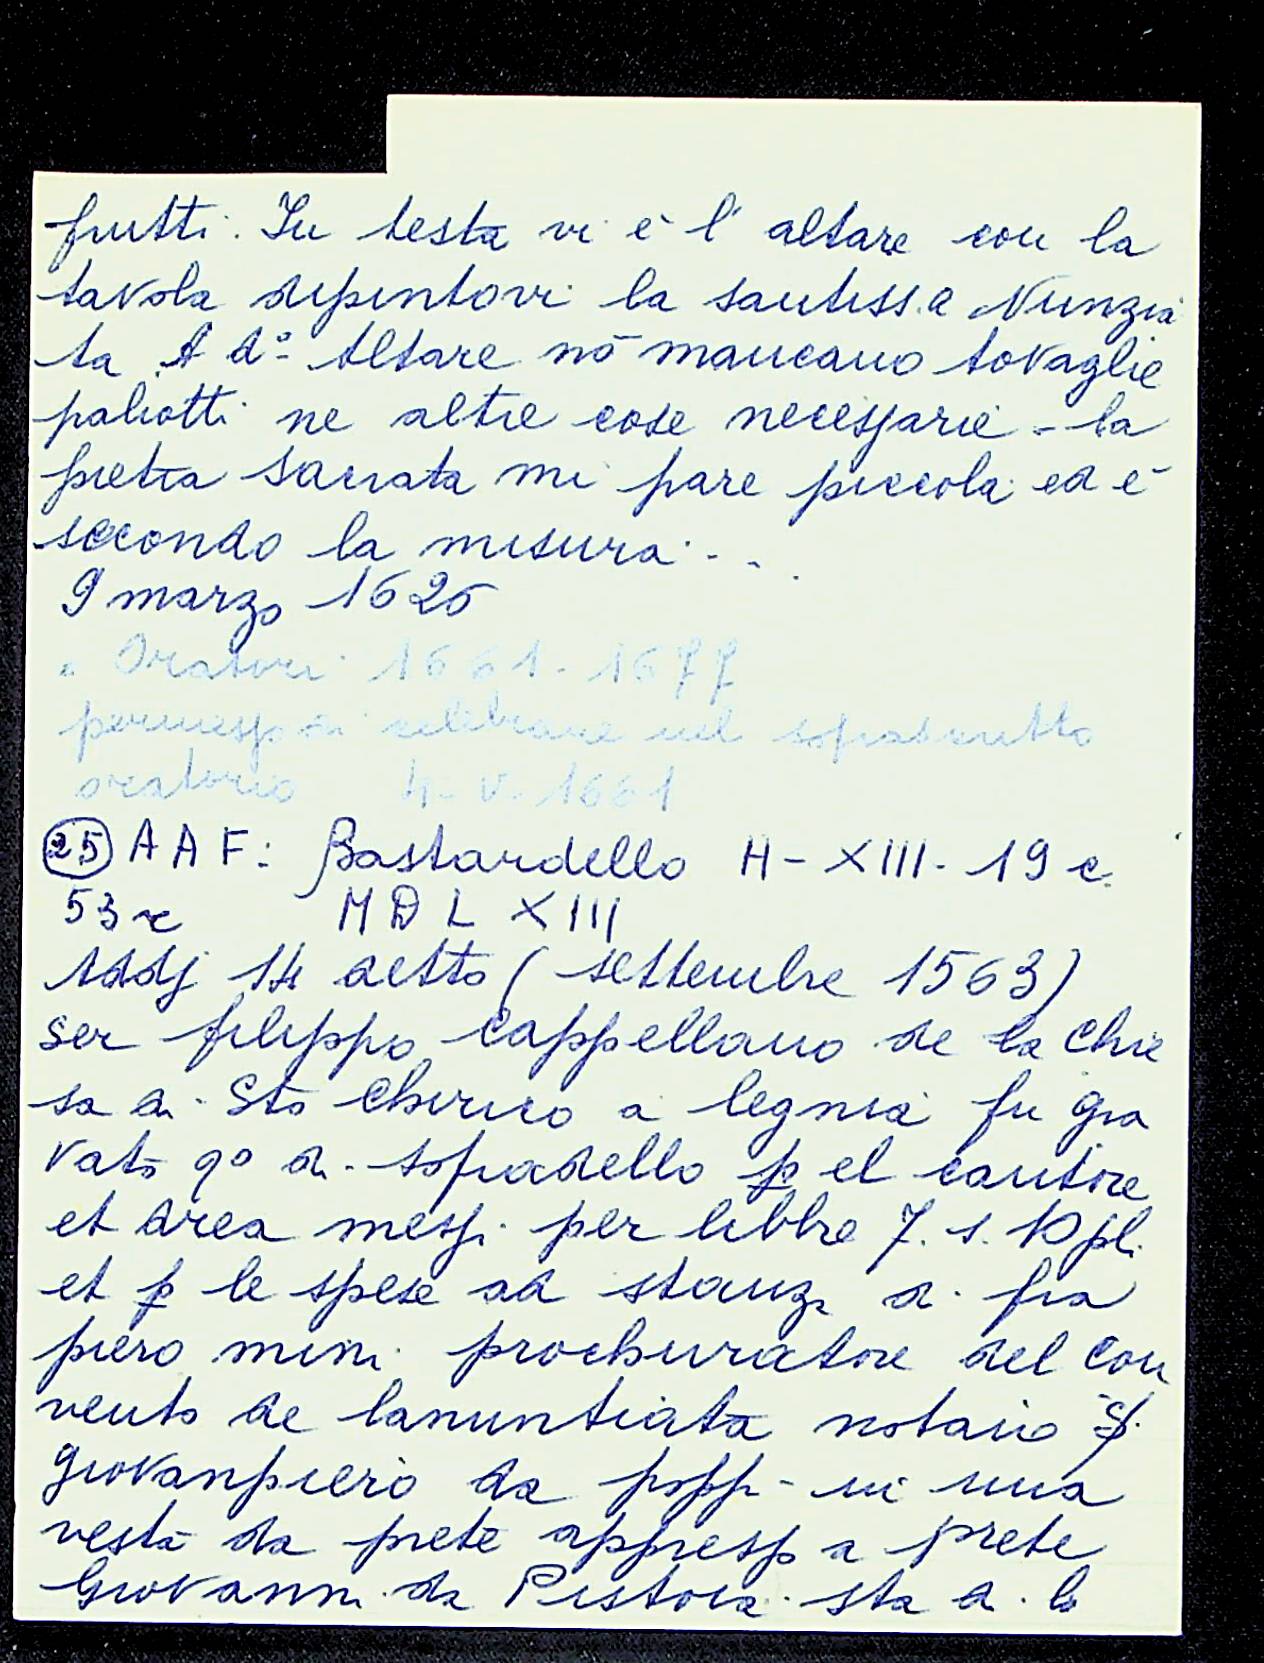 frutti. In testa vi è l'altare con la
tavola dipintovi la santiss.a Nunzia
ta A d.° Altare nō mancano tovaglie
paliotti ne altre cose necessarie - la
pietra sacrata mi pare piccola ed è
secondo la misura...
9 marzo 1626
" Oratori 1661-1677
permesso di celebrare nel soprascritto
oratorio 4-V-1661
(25) A A F: Bastardello H-XIII-19 c.
53 r MDLXIII
Addj 14 detto (settembre 1563)
ser filippo cappellano de la chie
sa di Sto Chirico a legnia fu gra
vato q° di sopradello p el cantore
et area messi per libbre 7. s. 10 pl.
et p le spese ad stanz di fra
piero mini prochuratore del con
vento de lanuntiata notaio S.
giovanpiero da poppi - in una
vesta da prete appresso a prete
Giovanni da Pistoia sta di lo